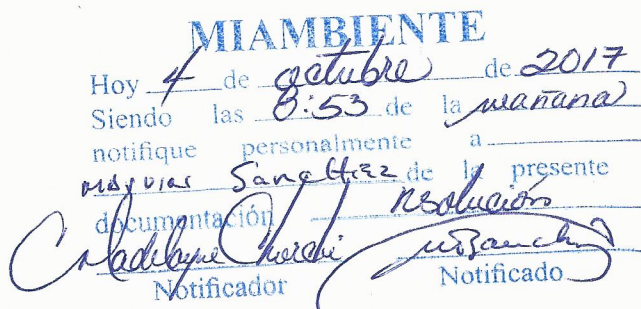 MIAMBIENTE
Hoy 4 de octubre de 2017
Siendo las 8:53 de la mañana
notifique personalmente a
Sanchez de la presente
documentación resolución
Notificador Notificado